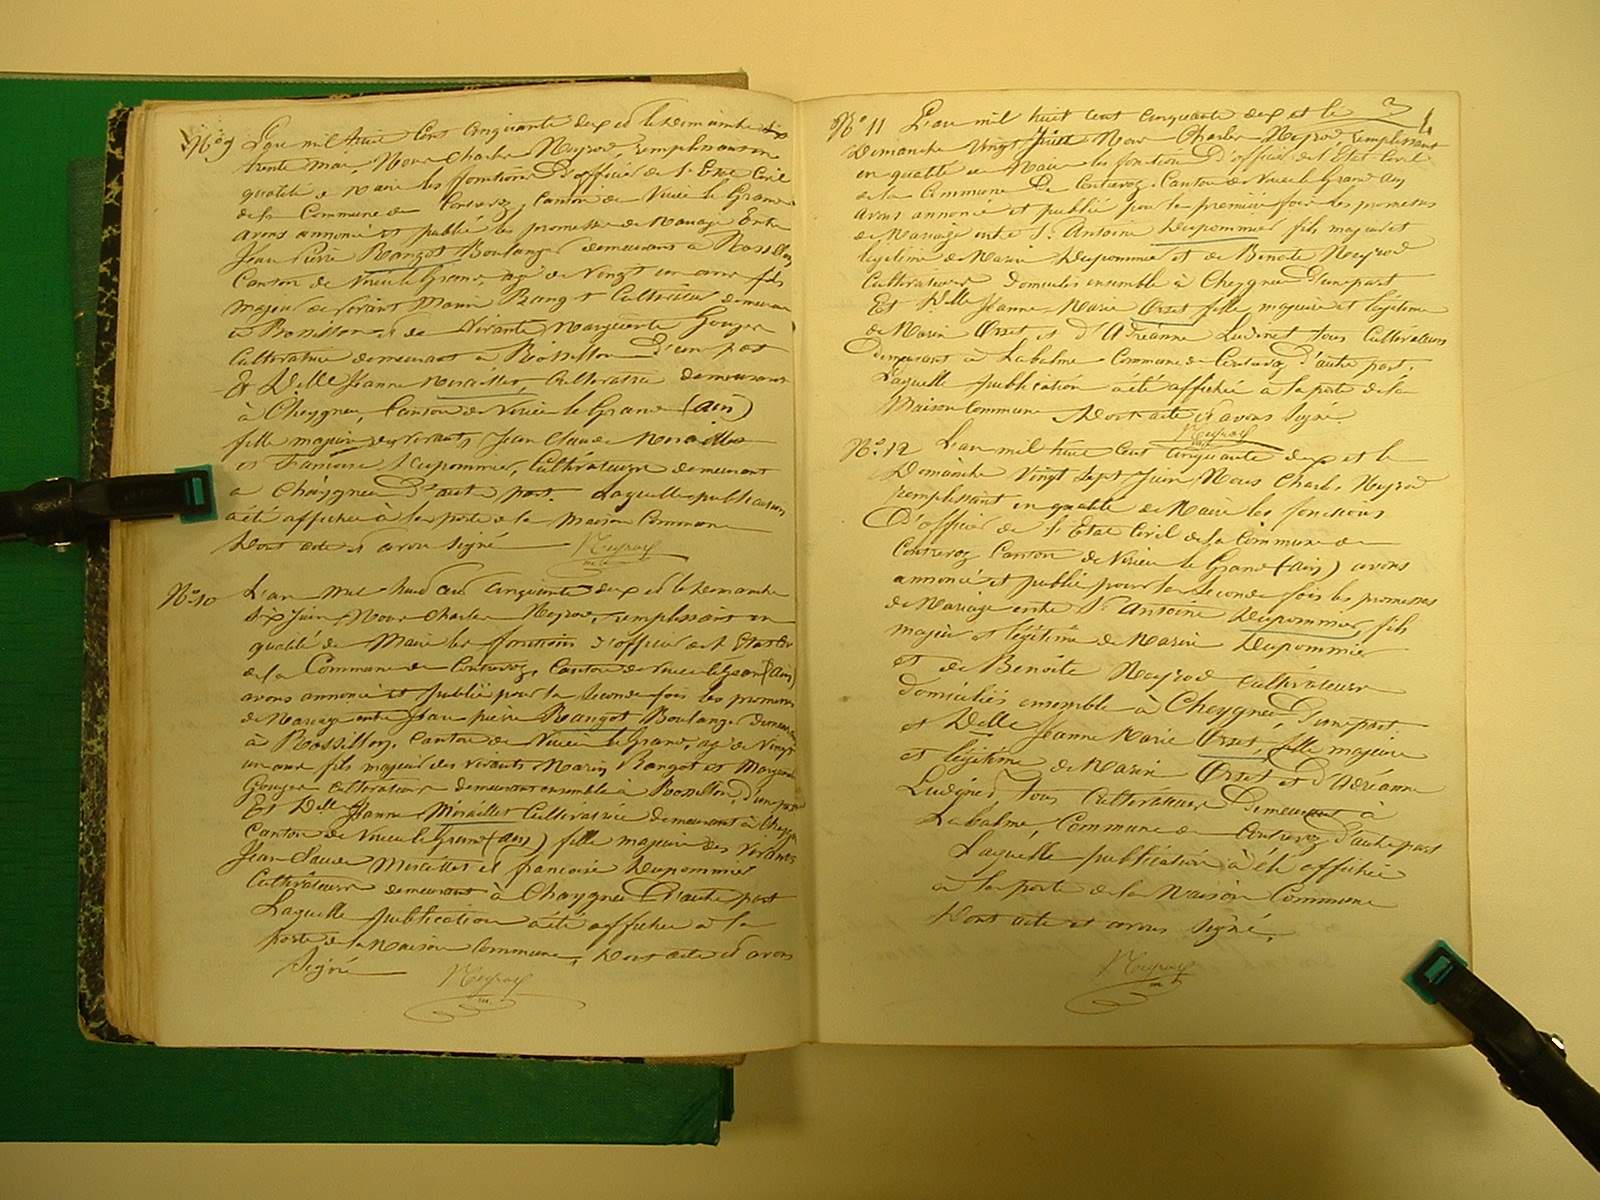 N.º 9 L'an mil huit cent cinquante deux et le Dimanche
trente mai, Nous Charles Neyrod, remplissant en
qualité de Maire les fonctions d'officier de l'Etat Civil
de la Commune de Contrevoz, Canton de Virieu le Grand
avons annoncé et publié les promesses de Mariage Entre
Jean Pierre Rangot Boulanger demeurant à Rossillon
Canton de Virieu le Grand, agé de Vingt un ans fils
majeur de vivant Marin Rangot Cultivateur demeurant
à Rossillon et de vivante Marguerite Gouger
Cultivatrice demeurant à Rossillon D'une part
Et Delle Jeanne Miraillet, Cultivatrice demeurant
à Cheygneu, Canton de Virieu le Grand (ain)
fille majeure des vivants, Jean Claude Miraillet
et Francoise Dupommier, Cultivateurs demeurant
à Cheygneu D'autre part. Laquelle publication
a été affichée à la porte de la maison Commune
Dont acte et avons signé Neyrod
N.º 10 L'an mil huit cent cinquante deux et le Dimanche
six Juin, Nous Charles Neyrod, remplissant en
qualité de Maire les fonctions d'officier de l'Etat Civ
de la Commune de Contrevoz, Canton de Virieu le grand (Ain)
avons annoncé et publié pour la seconde fois les promesses
de Mariage entre Jean pierre Rangot Boulanger demeurant
à Rossillon, Canton de Virieu le Grand, agé de Vingt
un ans fils majeur des vivants Marin Rangot et Marguerite
Gouger Cultivateurs demeurant ensemble à Rossillon, D'une part
Et Delle Jeanne Miraillet Cultivatrice demeurant à Cheygneu
Canton de Virieu le Grand (ain) fille majeure des Vivants
Jean Claude Miraillet et francoise Dupommier
Cultivateurs demeurant à Cheygneu D'autre part
Laquelle publication a été affichée à la
porte de la Maison Commune, Dont acte et avons
Signé Neyrod
N.º 11 L'an mil huit cent cinquante deux et le
Dimanche vingt Juin Nous Charles Neyrod, remplissant
en qualité de Maire les fonctions D'officier de l'Etat Civil
de la Commune De Contrevoz Canton de Virieu le Grand Ain
avons annoncé et publié pour la première fois les promesses
de Mariage entre Sr Antoine Dupommier fils majeur et
légitime de Marin Dupommier et de Benoite Neyrod
Cultivateurs domiciliés ensemble à Cheygneu D'une part
Et Delle Jeanne Marie Orset fille majeure et légitime
de Marin Orset et d'Adréanne Ludinet tous Cultivateurs
Demeurant à Labalme Commune de Contrevoz D'autre part.
Laquelle publication a été affichée à la porte de la
Maison Commune Dont acte et avons Signé
Neyrod
N.º 12 L'an mil huit cent cinquante deux et le
Dimanche Vingt sept Juin Nous Charles Neyrod
remplissant en qualité de Maire les fonctions
D'officier de l'Etat Civil de la Commune de
Contrevoz Canton de Virieu le Grand (ain) avons
annoncé et publié pour la seconde fois les promesses
de Mariage entre Sr Antoine Dupommier, fils
majeur et légitime de Marin Dupommier
et de Benoîte Neyrod Cultivateurs
domiciliés ensemble à Cheygneu D'une part
et Delle Jeanne Marie Orset, fille majeure
et légitime de Marin Orset et d'Adréanne
Ludinet, tous Cultivateurs Demeurant à
Labalme, Commune de Contrevoz D'autre part
Laquelle publication a été affichée
à la porte de la Maison Commune
Dont acte et avons Signé.
Neyrod